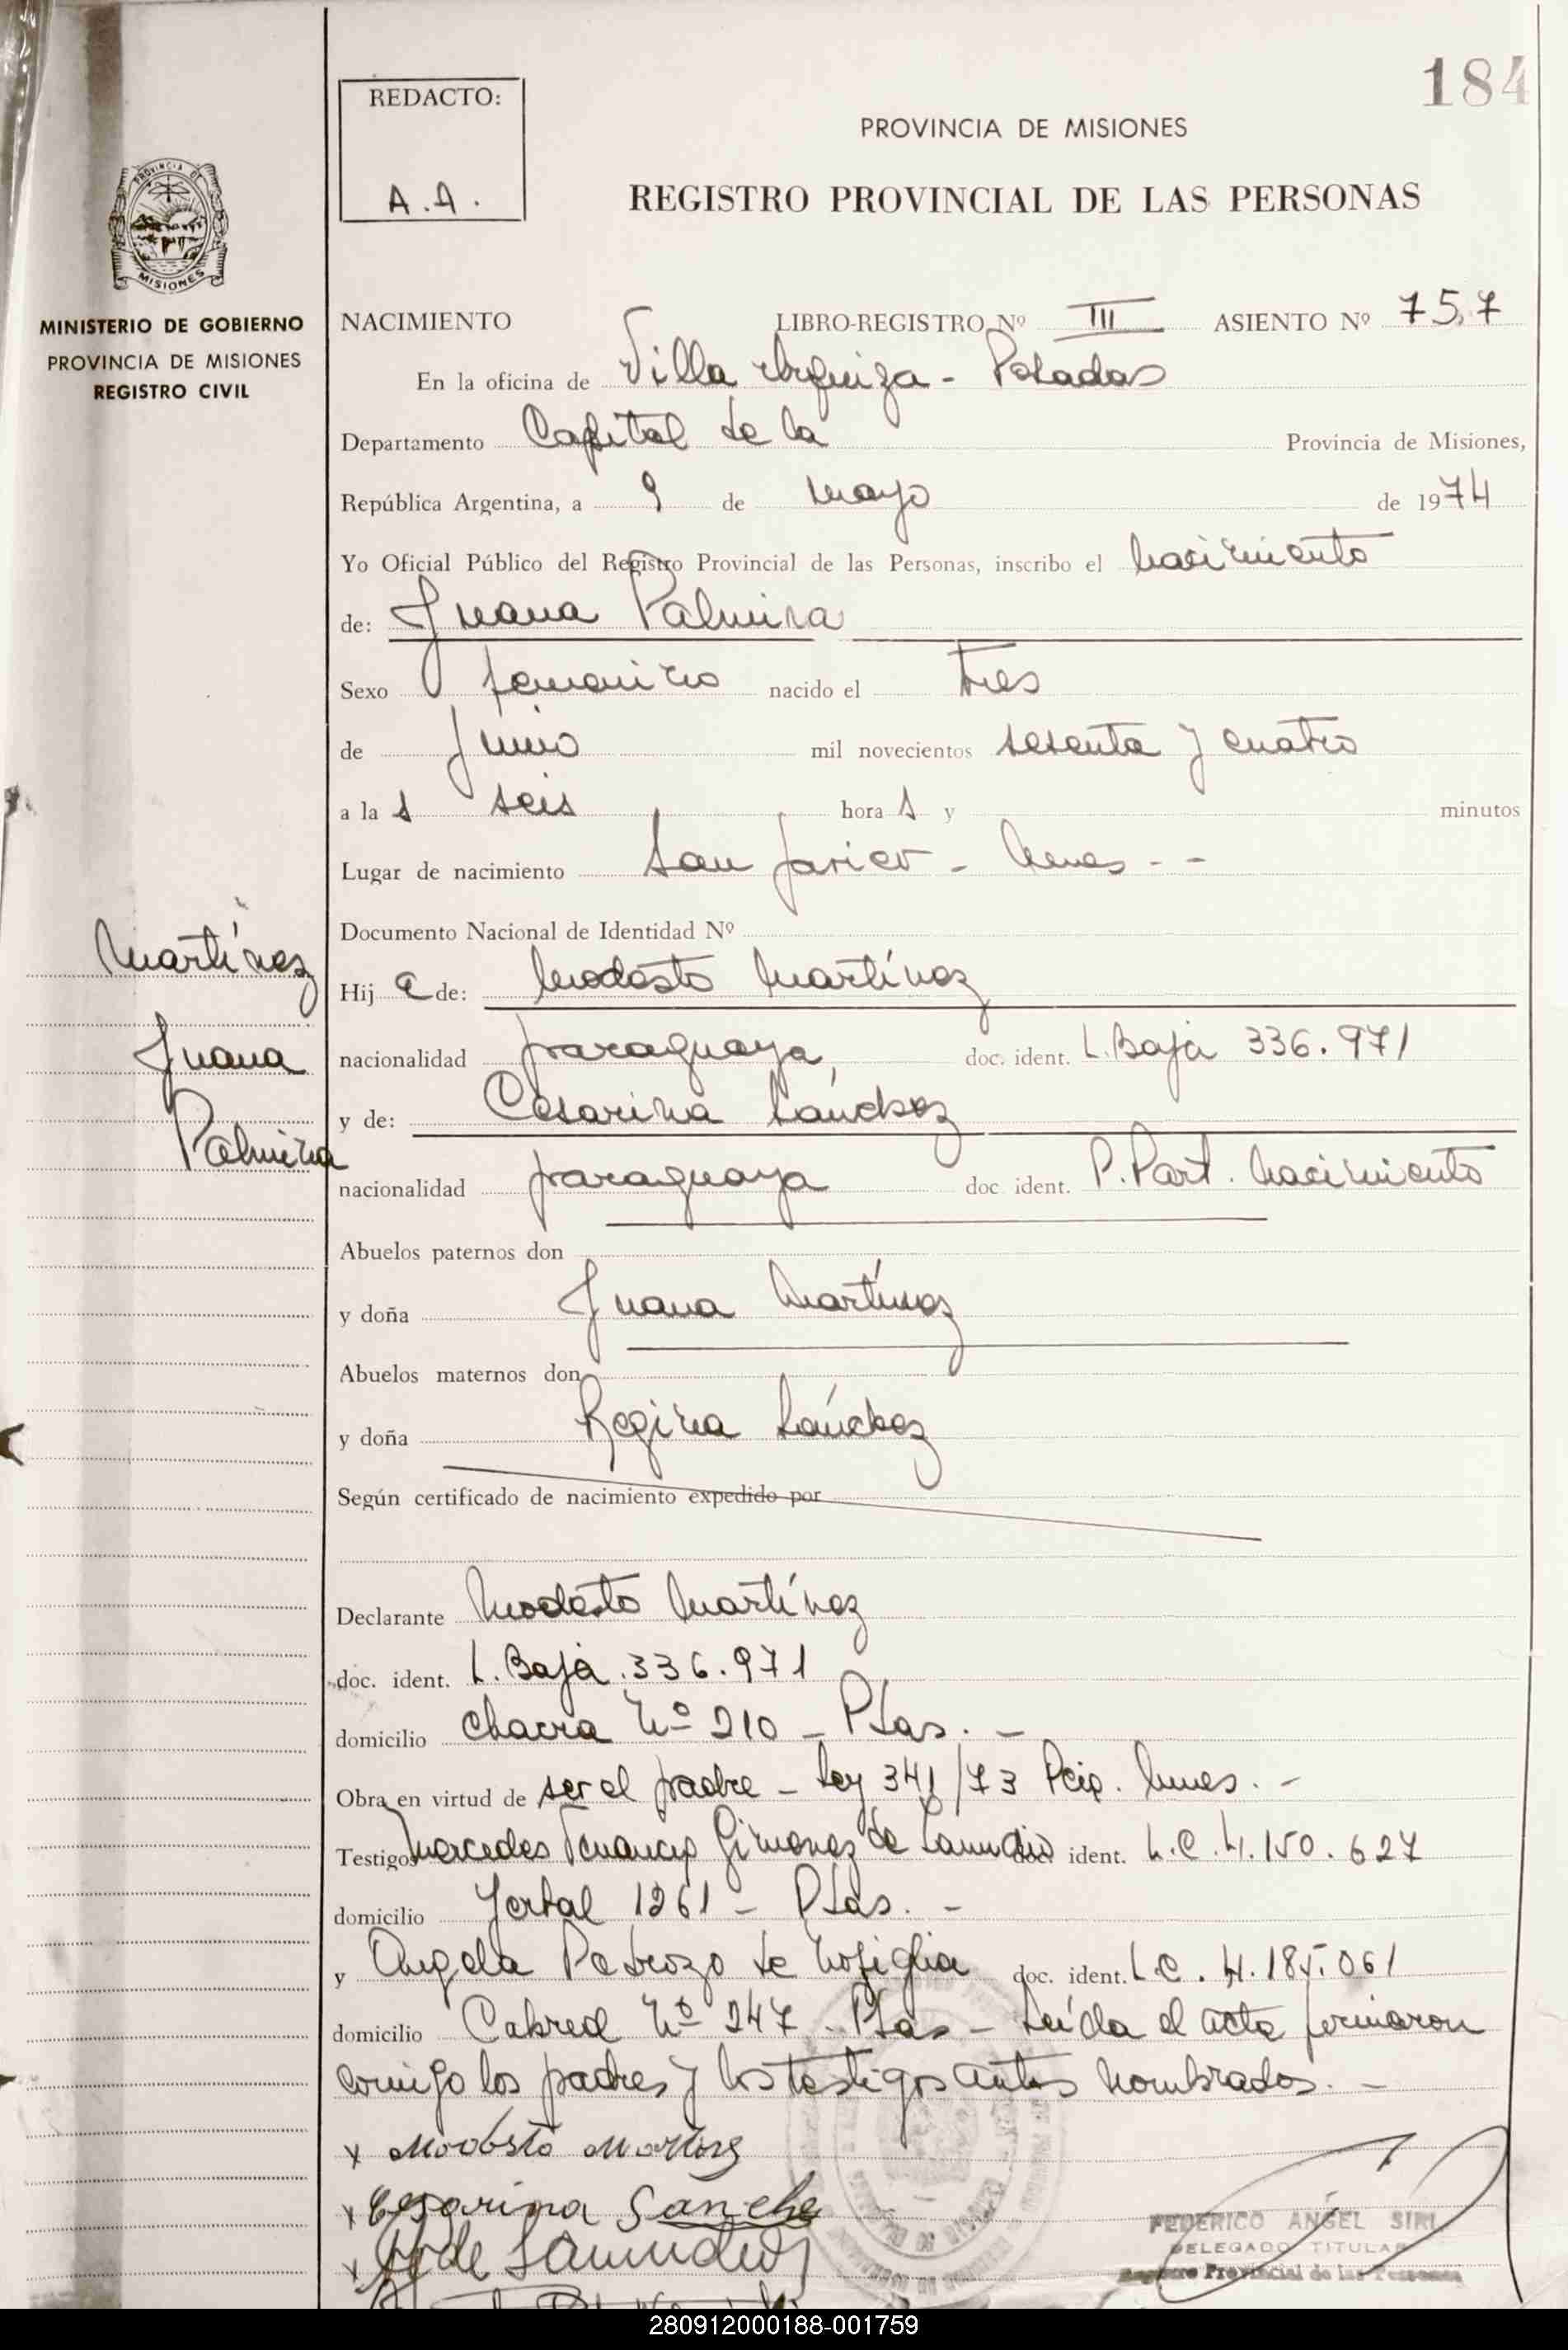 184
REDACTO:
A.A.
PROVINCIA DE MISIONES
REGISTRO PROVINCIAL DE LAS PERSONAS
PROVINCIA DE
MISIONES
MINISTERIO DE GOBIERNO
PROVINCIA DE MISIONES
REGISTRO CIVIL
NACIMIENTO LIBRO-REGISTRO Nº III ASIENTO Nº 757
En la oficina de Villa Urquiza - Posadas
Departamento Capital de la Provincia de Misiones,
República Argentina, a 9 de Mayo de 1974
Yo Oficial Público del Registro Provincial de las Personas, inscribo el Nacimiento
de: Juana Palmira
Sexo femenino nacido el Tres
de Junio mil novecientos sesenta y cuatro
a la s seis hora s y minutos
Lugar de nacimiento San Javier - Mnes - -
Documento Nacional de Identidad Nº
Martínez
Juana
Palmira
Hij a de: Modesto Martínez
nacionalidad paraguaya, doc. ident. L. Baja 336.971
y de: Cesarina Sánchez
nacionalidad paraguaya doc. ident. P. Part. Nacimiento
Abuelos paternos don
y doña Juana Martínez
Abuelos maternos don
y doña Regina Sánchez
Según certificado de nacimiento expedido por
Declarante Modesto Martínez
doc. ident. L. Baja 336.971
domicilio Chacra Nº 210 - Pdas. -
Obra en virtud de ser el padre - Ley 341/73 Pcia. Mnes. -
Testigos Mercedes Gimenez de doc. ident. L.C. 4.150.627
domicilio Yerbal 1261 - Pdas. -
y Angela Pedrozo de doc. ident. L.C. 4.185.061
domicilio Cabred Nº 247 - Pdas - Leída el acta firmaron
conmigo los padres y los testigos antes nombrados. -
x Modesto Martinez
x Cesarina Sanche
x
FEDERICO ANGEL SIRI
DELEGADO TITULAR
Registro Provincial de las Personas
280912000188-001759